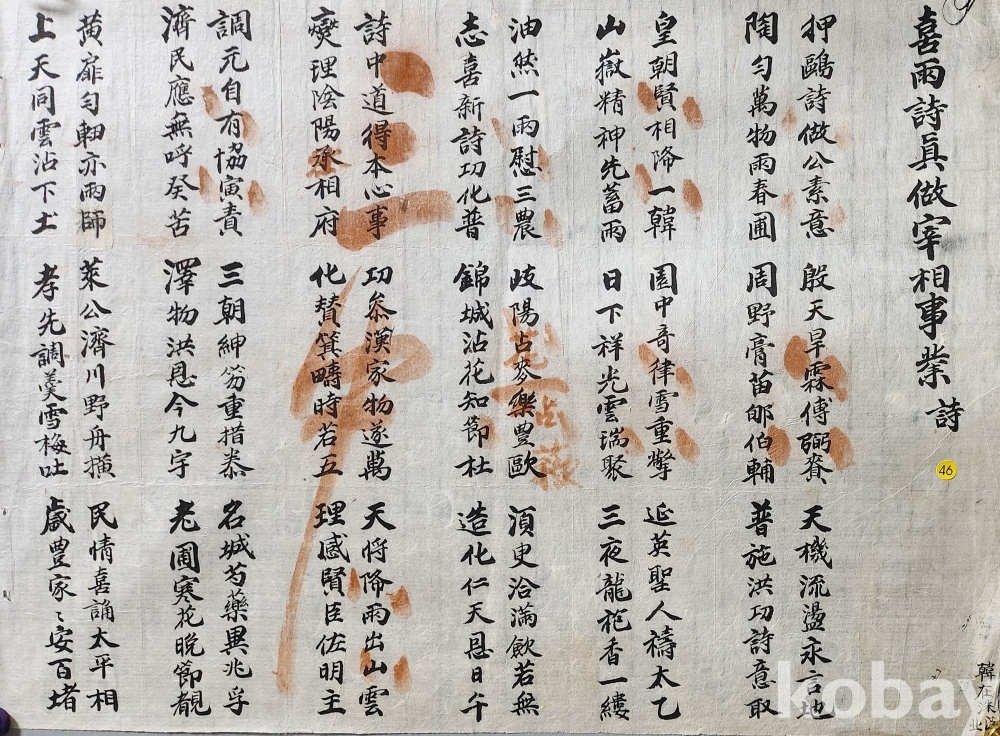 喜雨詩眞做宰相事業 詩
押鷗詩做公素意 殷天旱霖傅弼賚 天機流盪永言地
陶匀萬物雨春圃 周野膏苗郇伯輔 普施洪功詩意取
皇朝賢相降一韓 園中奇律雪重擎 延英聖人禱太乙
山嶽精神先蓄雨 日下祥光雲瑞聚 三夜龍袍香一縷
油然一雨慰三農 歧陽占麥樂豊歐 須更洽滿歛若無
志喜新詩功化普 錦城沾花知節杜 造化仁天恩日午
詩中道得本心事 功叅漢家物遂萬 天將降雨出山雲
燮理陰陽丞相府 化贊箕疇時若五 理感賢臣佐明主
調元自有協寅責 三朝紳笏重措泰 名城芍藥異兆孚
濟民應無呼癸苦 澤物洪恩今九宇 老圃寒花晩節覩
黃扉匀軔亦雨師 萊公濟川野舟橫 民情喜誦太平相
上天同雲沾下土 孝先調羹雪梅吐 歲豊家〻安百堵
46
韓在洙
kobay